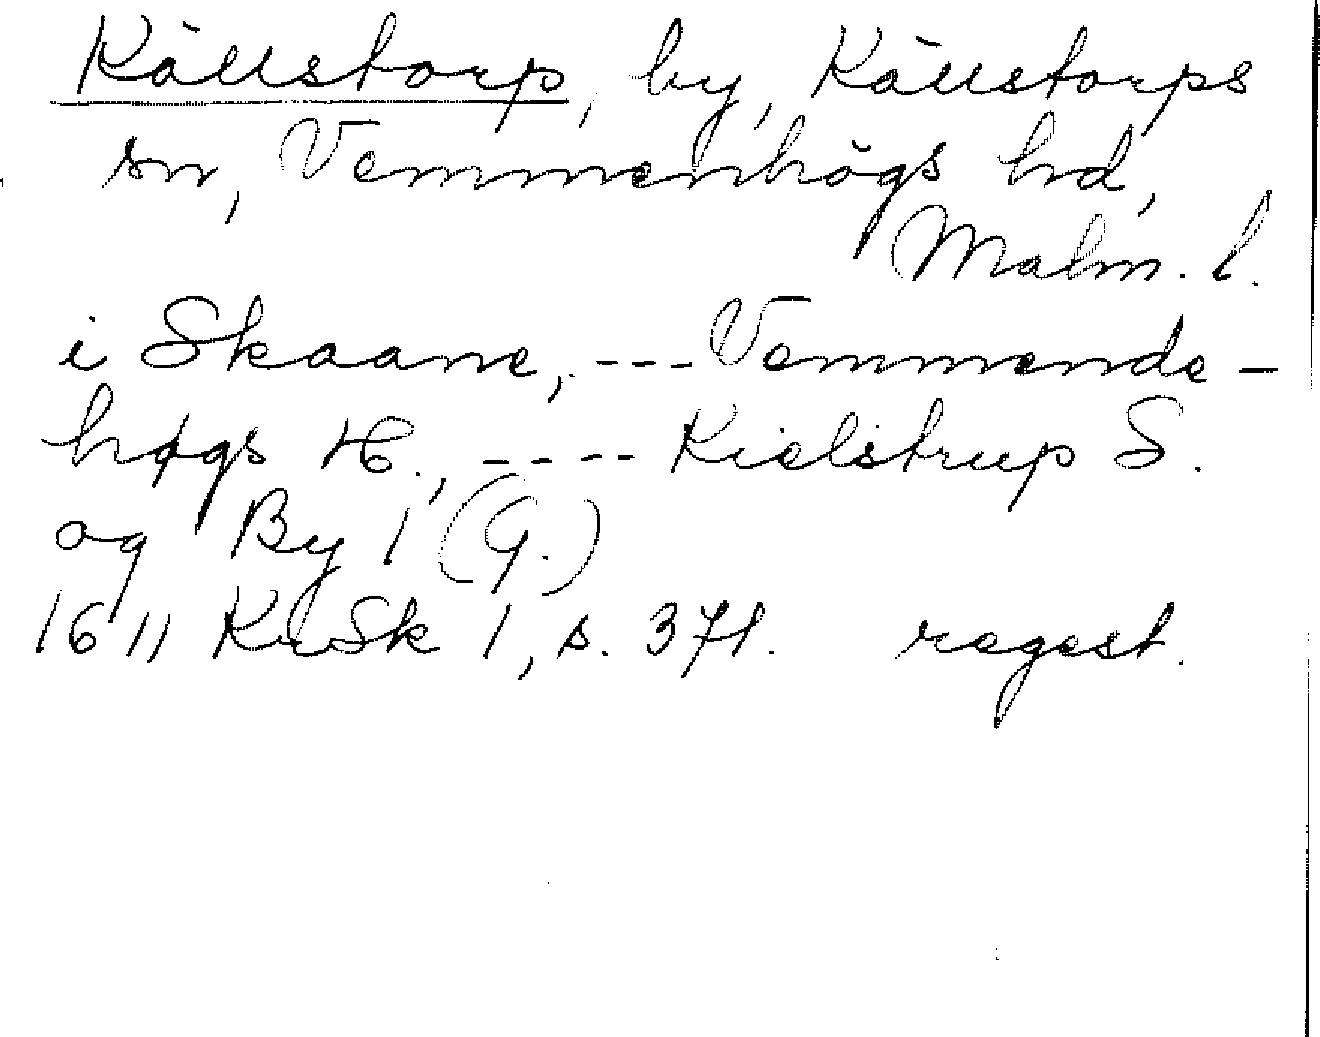 Källstorp, by, Källstorps
sn, Vemmenhögs hd,
Malm. l.
i Skaane, --- Vemmende-
høgs H., ---- Kielstrup S.
og By 1 (G.)
1611 KrSk 1, s. 371. regest.